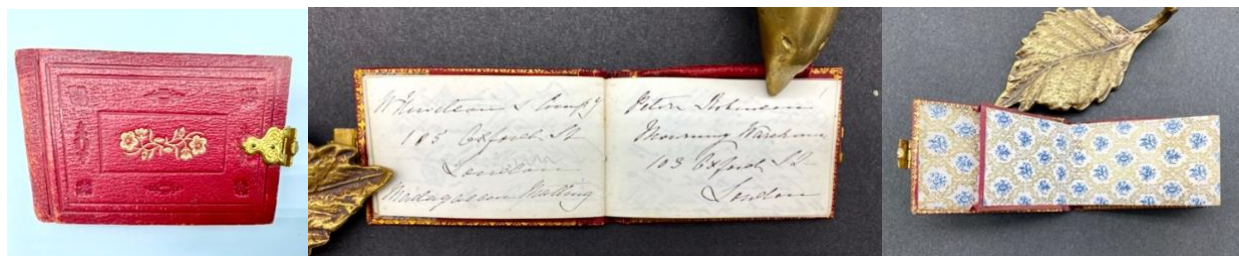 & Compy
185 Oxford St
London
Madagascar Matting
Peter Robinson
Mourning Warehouse
103 Oxford St
London